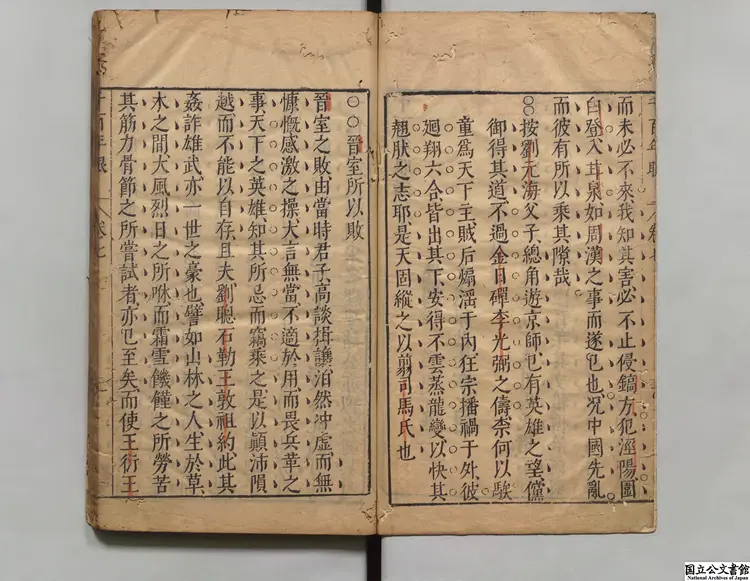 而未必不來我知其害必不止侵鎬方犯涇陽圍
白登入甘泉如周漢之事而遂已也况中國先亂
而彼有所以乘其隙哉
○○按劉元海父子總角遊京師已有英雄之望儻
御得其道不過金日磾李光弼之儔柰何以騃
童爲天下主賊后煽滛于內狂宗播禍于外彼
廻翔六合皆出其下安得不雲蒸龍變以快其
翹肰之志耶是天固縱之以翦司馬氏也
○○晉室所以敗
晉室之敗由當時君子高談揖讓泊然冲虛而無
慷慨感激之操大言無當不適於用而畏兵革之
事天下之英雄知其所忌而竊乘之是以顚沛隕
越而不能以自存且夫劉聰石勒王敦祖約此其
姦詐雄武亦一世之豪也譬如山林之人生於草
木之間大風烈日之所咻而霜雪饑饉之所勞苦
其筋力骨節之所嘗試者亦已至矣而使王衍王
千百年眼 卷七
国立公文書館
National Archives of Japan